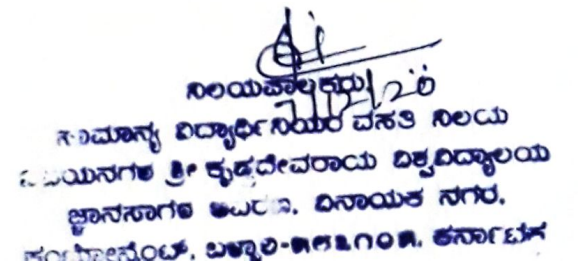 ನಿಲಯಪಾಲಕರು
ಸಾಮಾನ್ಯ ವಿದ್ಯಾರ್ಥಿನಿಯರ ವಸತಿ ನಿಲಯ
ವಿಜಯನಗರ ಶ್ರೀ ಕೃಷ್ಣದೇವರಾಯ ವಿಶ್ವವಿದ್ಯಾಲಯ
ಜ್ಞಾನಸಾಗರ ಆವರಣ, ವಿನಾಯಕ ನಗರ,
ಕಂಟೋನ್ಮೆಂಟ್, ಬಳ್ಳಾರಿ-೫೮೩೧೦೫. ಕರ್ನಾಟಕ